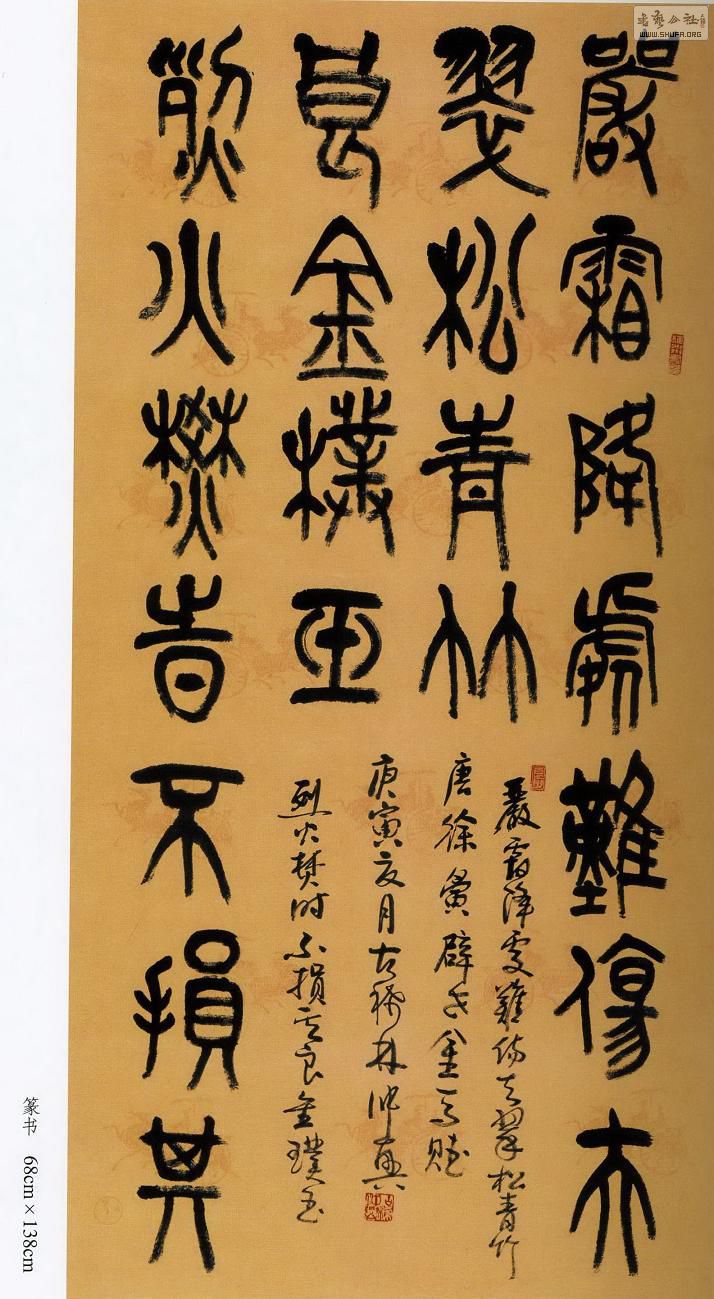 嚴霜降處難傷夫
翠松青竹
烈火焚時不損其
良金璞玉
嚴霜降處難傷夫翠松青竹
烈火焚時不損其良金璞玉
唐徐夤辟世金馬賦
庚寅夏月古稀林仲興
篆书 68cm×138cm
WWW.SHUFA.ORG